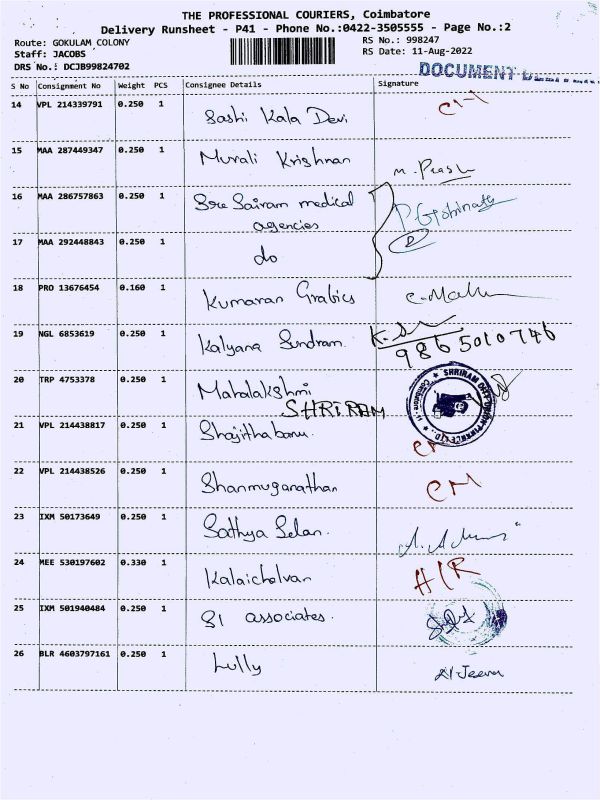 THE PROFESSIONAL COURIERS, Coimbatore
Delivery Runsheet - P41 - Phone No.:0422-3505555 - Page No.:2
Route: GOKULAM COLONY
RS No.: 998247
Staff: JACOBS
RS Date: 11-Aug-2022
DRS No.: DCJB99824702
DOCUMENT
S No Consignment No Weight PCS Consignee Details Signature
14 VPL 214339791 0.250 1 Sashi Kala Devi
15 MAA 287449347 0.250 1 Murali Krishnan
16 MAA 286757863 0.250 1 Sree Sairam medical
agencies
P Gobinath
17 MAA 292448843 0.250 1 do
18 PRO 13676454 0.160 1 Kumaran Grabics
19 NGL 6853619 0.250 1 Kalyana Sundram.
9865010746
20 TRP 4753378 0.250 1 Mahalakshmi
SHRIRAM
SHRIRAM CITY UNION FINANCE LTD.
Coimbatore
21 VPL 214438817 0.250 1 Shajithabanu.
22 VPL 214438526 0.250 1 Shanmuganathan CM
23 IXM 50173649 0.250 1 Sathya Selan.
24 MEE 530197602 0.330 1 Kalaichelvan H/R
25 IXM 501940484 0.250 1 SI associates.
26 BLR 4603797161 0.250 1 Lully